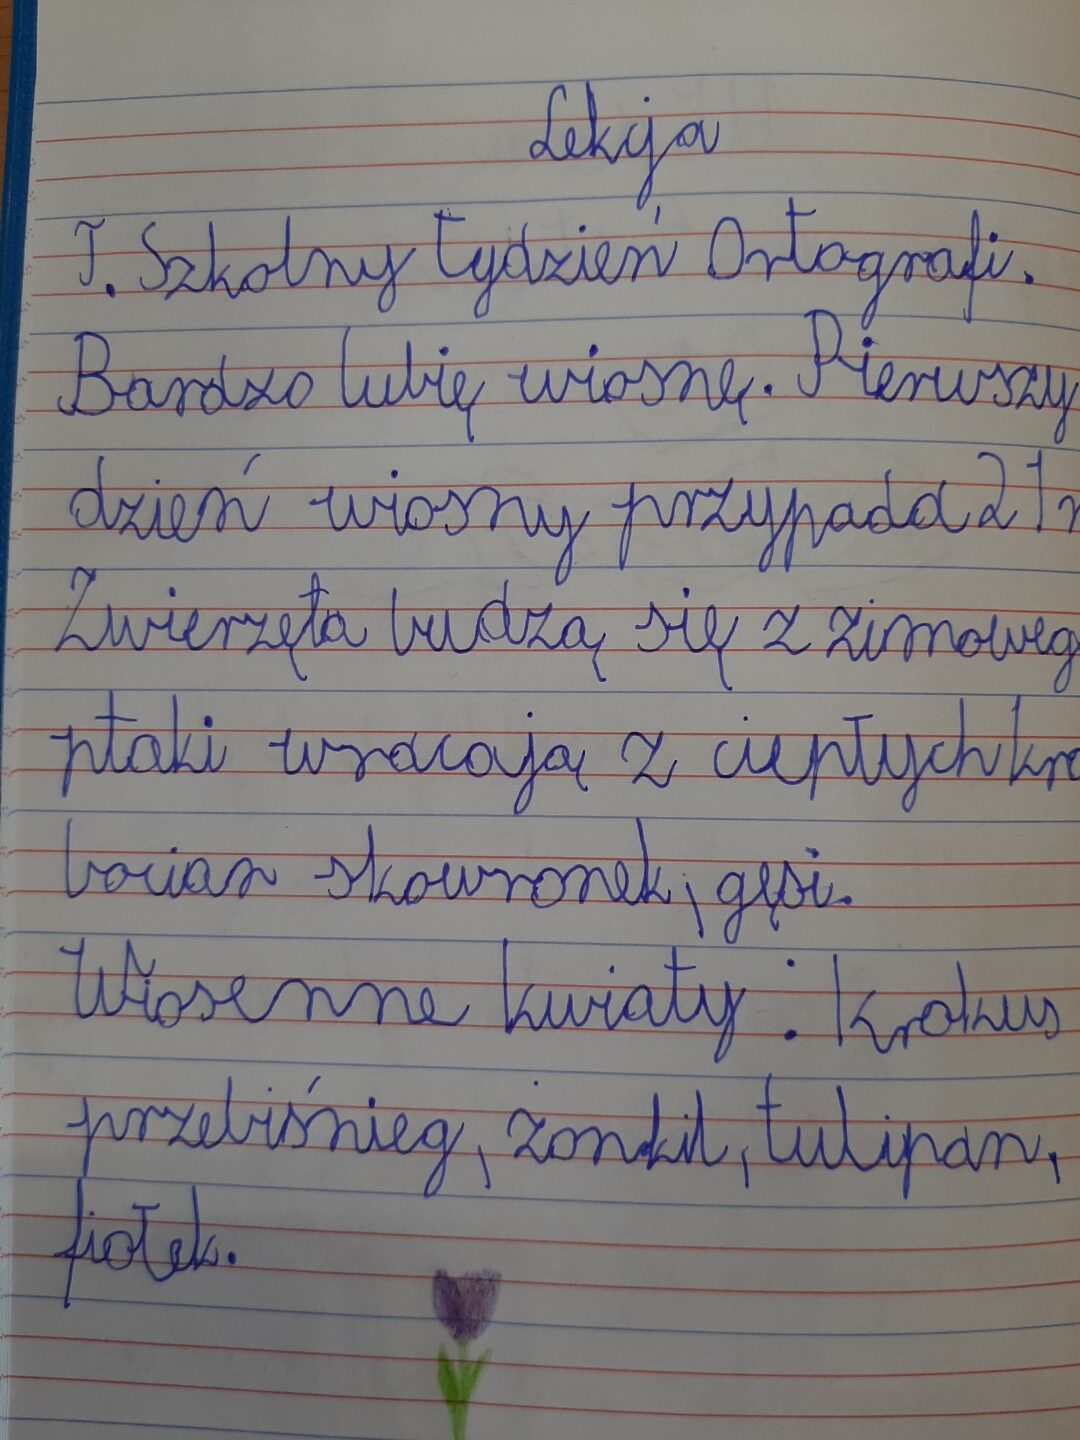 Lekcja
T. Szkolny Tydzień Ortografi.
Bardzo lubię wiosnę. Pierwszy
dzień wiosny przypada 21
Zwierzęta budzą się z zimoweg
ptaki wracają z ciepłych
bocian skowronek, gęsi.
Wiosenne kwiaty: krokus
przebiśnieg, żonkil, tulipan,
fiołek.